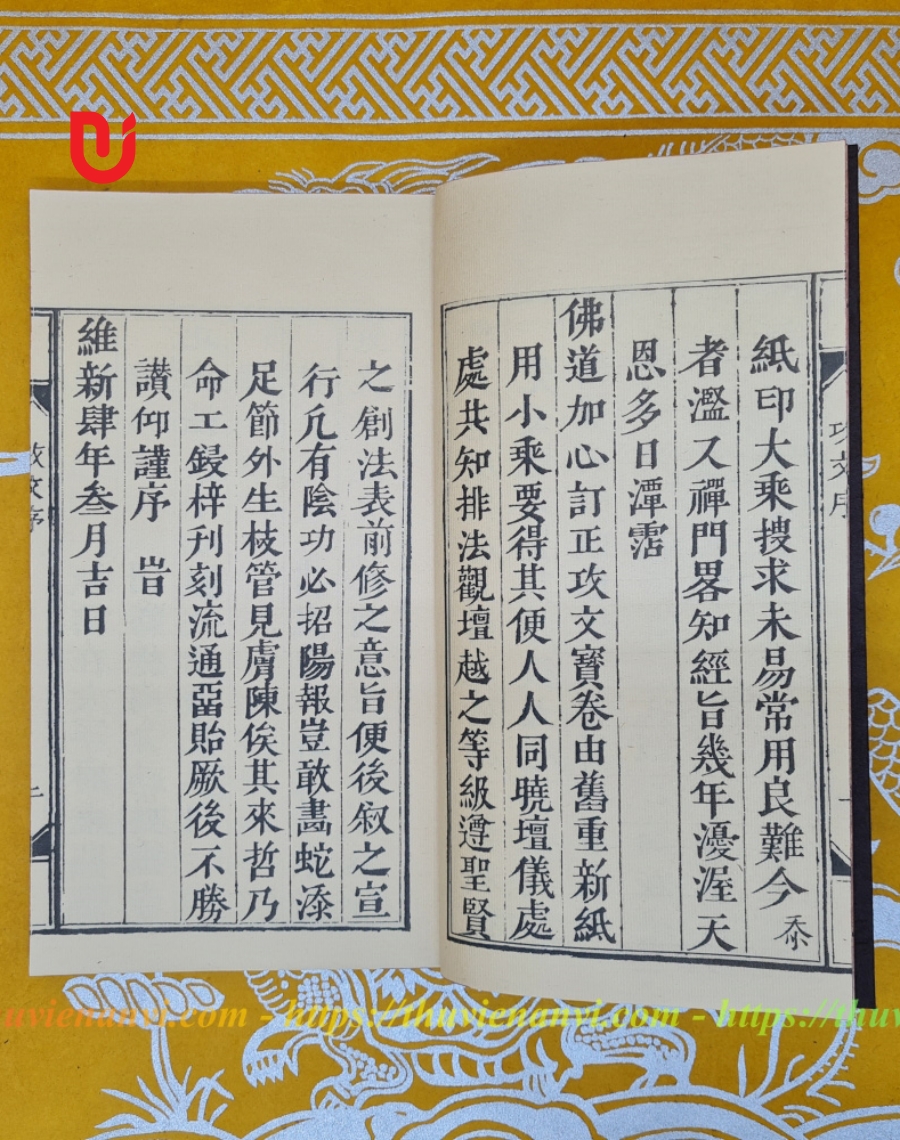 紙印大乘搜求未易常用良難今忝
者濫又禪門畧知經旨幾年瀀渥天
恩多日潭霑
佛道加心訂正攻文寳卷由舊重新紙
用小乘要得其便人人同曉壇儀處
處共知排法觀壇越之等級遵聖賢
之創法表前修之意旨便後叙之宣
行凢有陰功必招陽報豈敢畵蛇添
足節外生枝管見膚陳俟其來哲乃
命工鋟梓刊刻流通畱貽厥後不勝
讃仰謹序 旹
維新肆年叁月吉日
攻文序
https://thuvienanvi.com